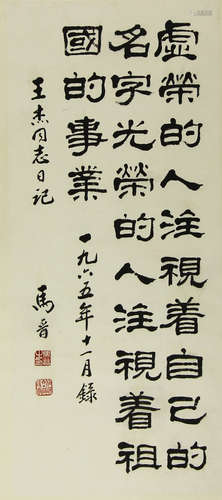 虛榮的人注視着自己的
名字光榮的人注視着祖
國的事業
王杰同志日记
一九六五年十一月錄
馬晋